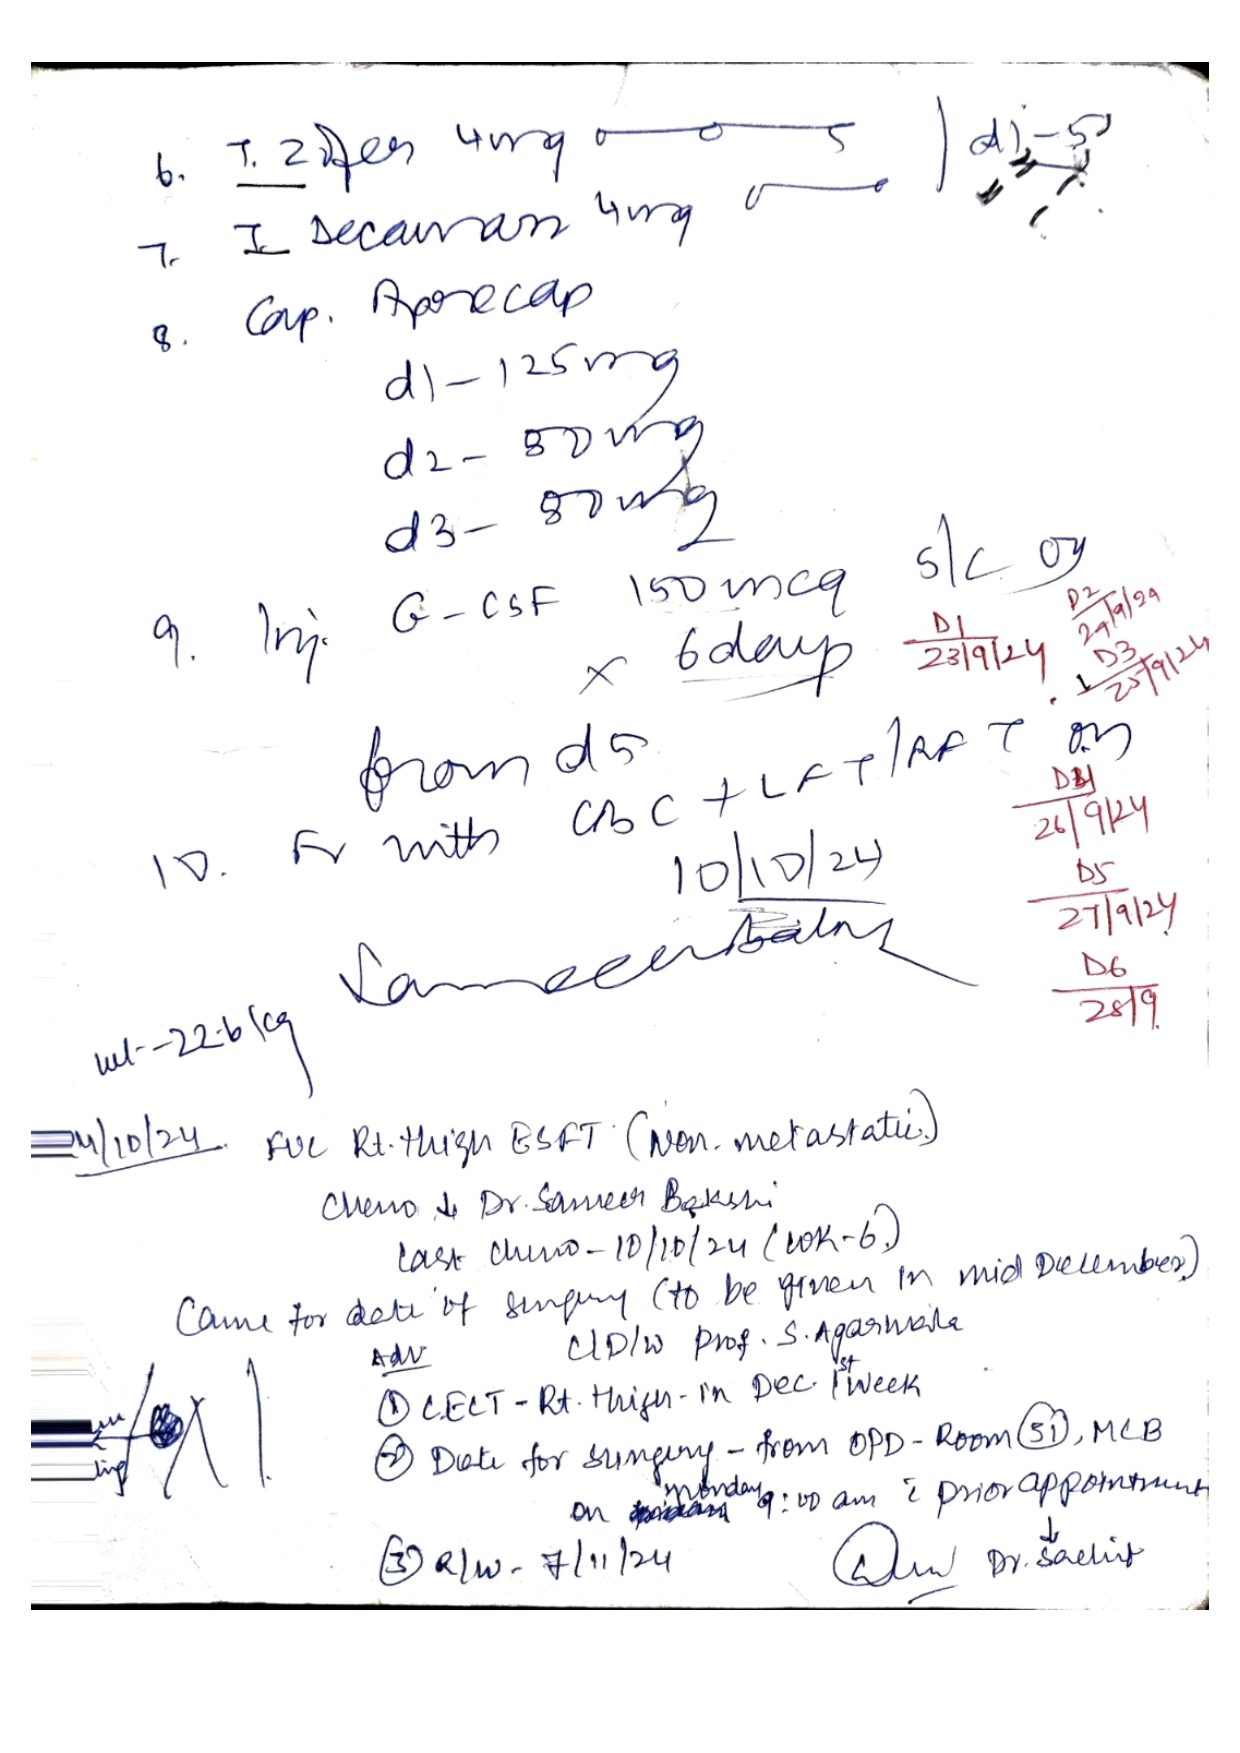 6. T. Zifer 4mg o—o—5 | d1-5
7. T. Decamax 4mg
8. Cap. Aprecap
d1 - 125mg
d2 - 80mg
d3 - 80mg
9. Inj. G-CSF 150mcg S/C OD
x 6 days
D1
23/9/24
D2
24/9/24
D3
25/9/24
from d5
10. Fv with CBC + LFT/RFT on
10/10/24
D4
26/9/24
D5
27/9/24
D6
28/9
wt - 22.6 kg
4/10/24 FUC Rt. thigh ESFT (Non-metastatic)
Chemo Dr. Sameer Bakshi
Last chemo - 10/10/24 (wk-6)
Came for date of surgery (to be given in mid December)
Adv C/D/W Prof. S. Agarwala
① CECT - Rt. thigh - in Dec 1st week
② Date for surgery - from OPD - Room 51, MCB
on monday 9:00 am c̄ prior appointment
↓
③ R/W - 7/11/24 Dr. Sachit